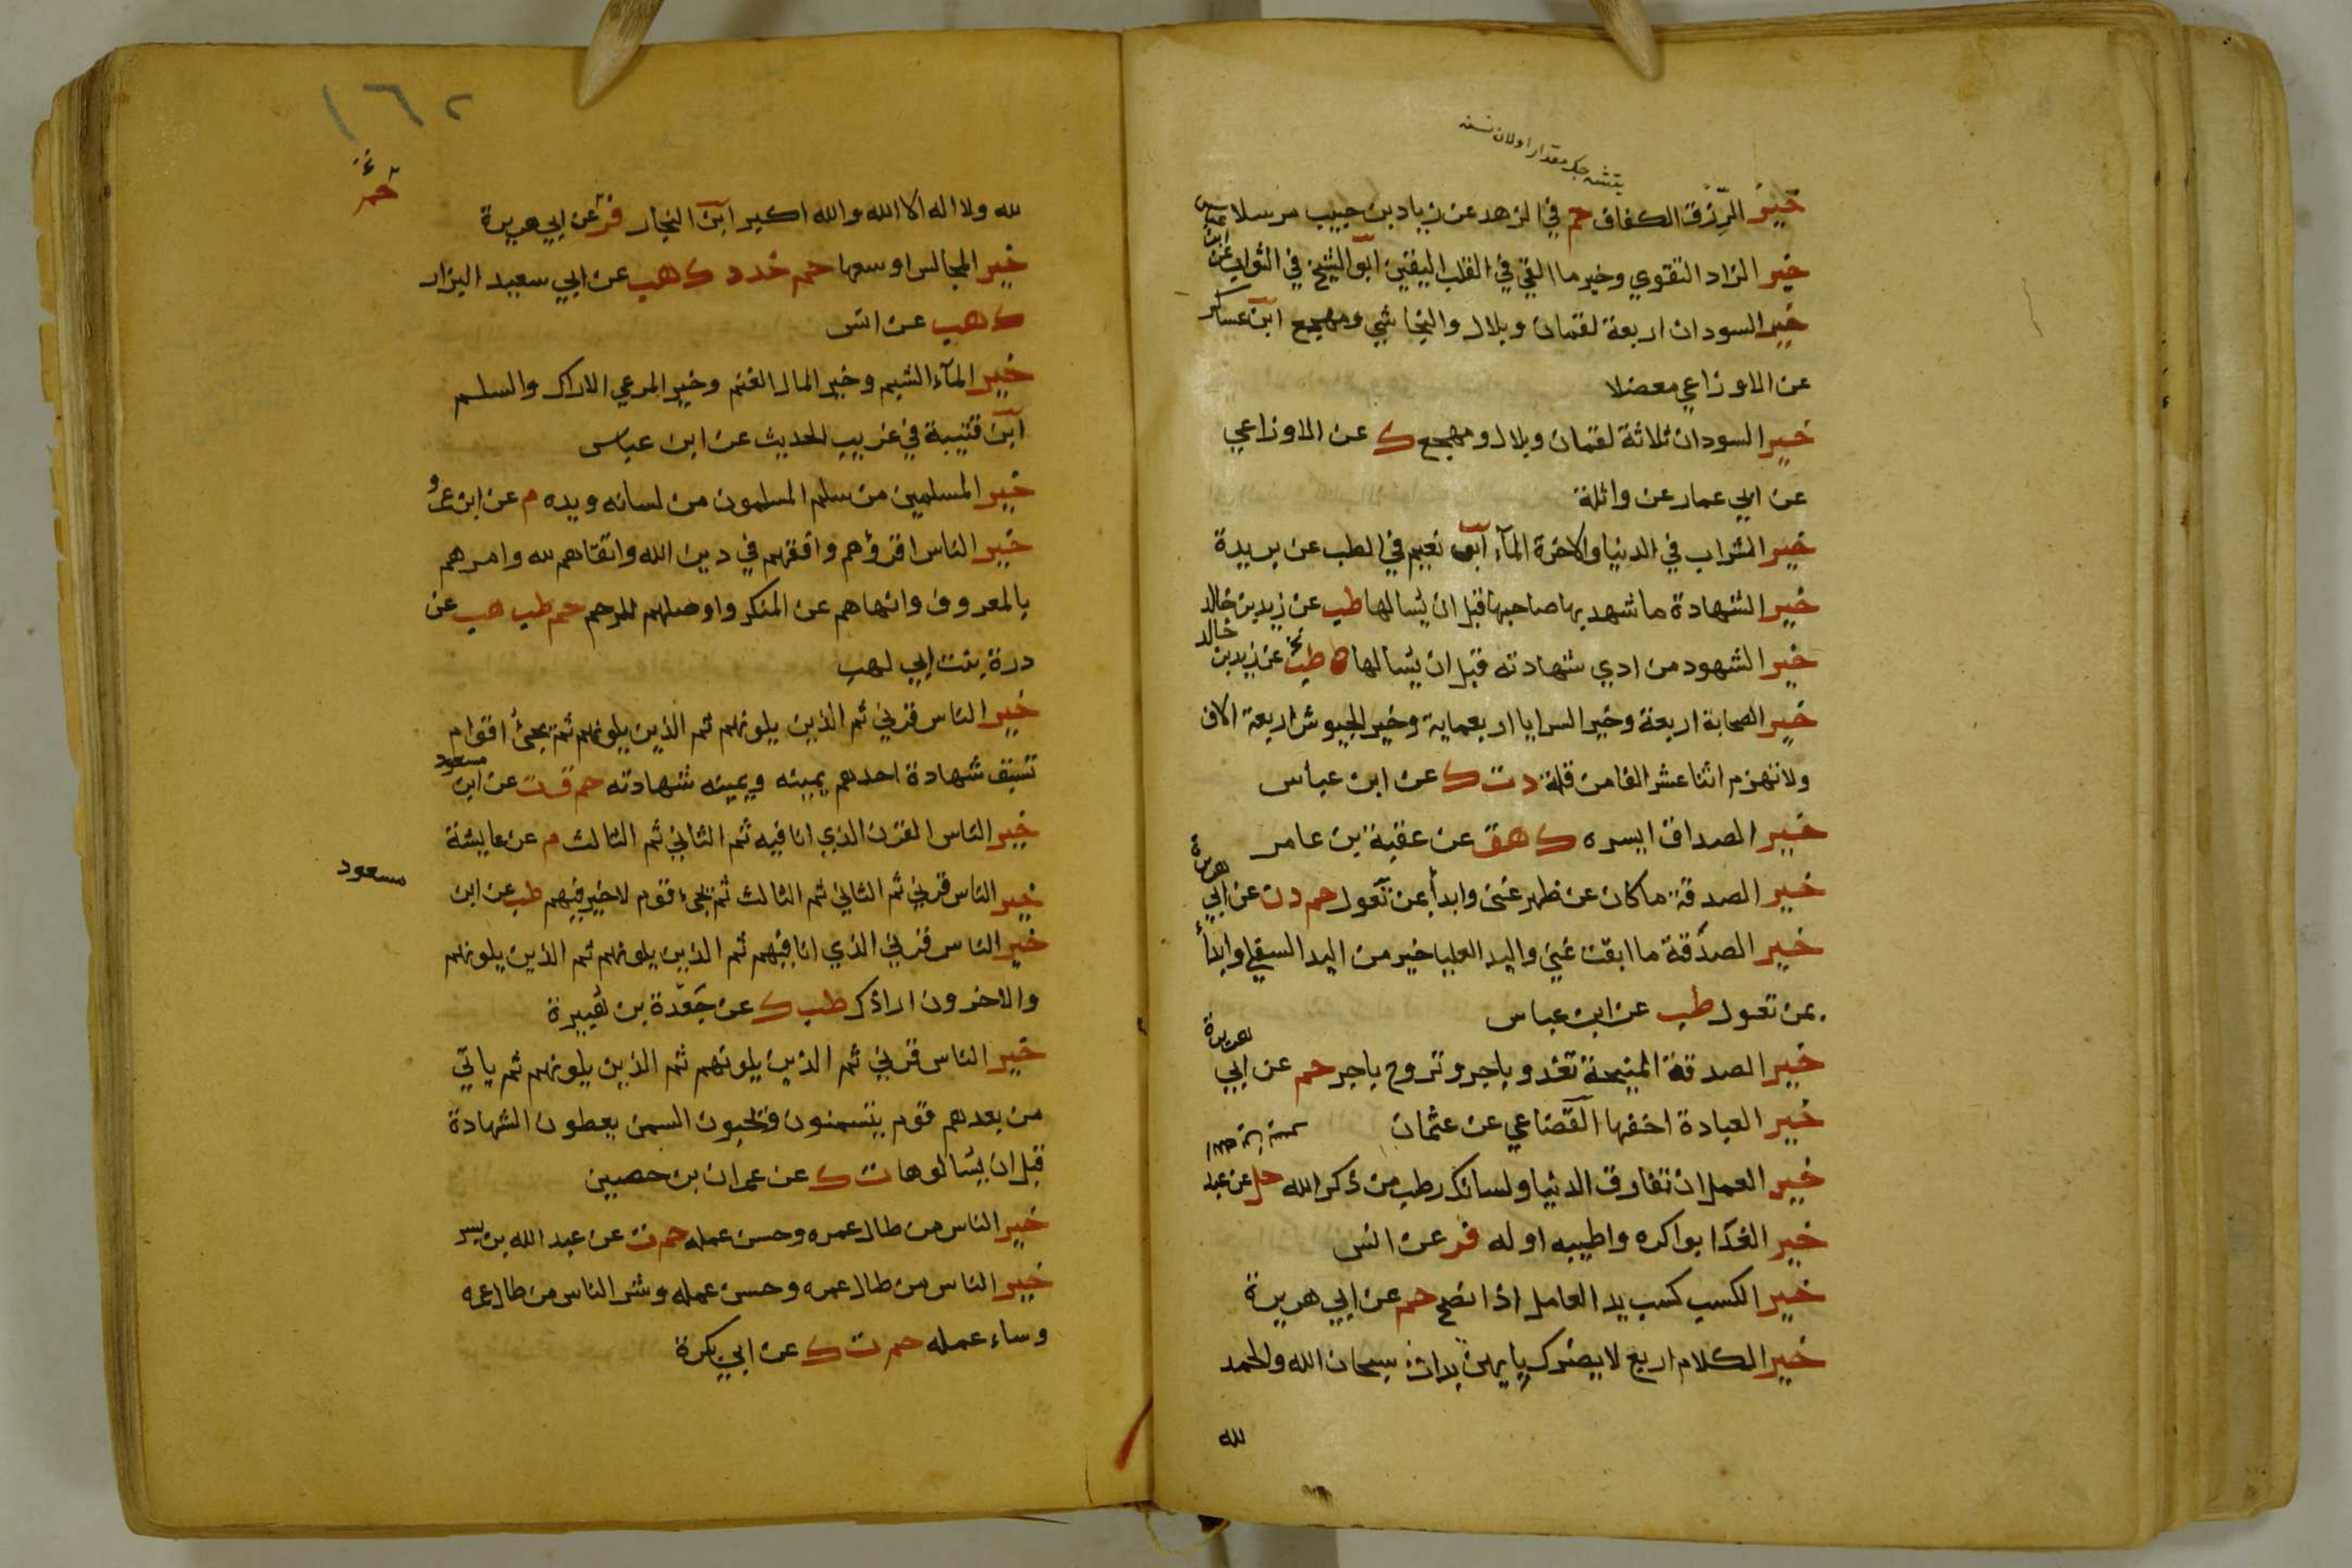 خير الرزق الكفاف حم في الزهد عن زياد بن جبير مرسلا
خير الزاد التقوي وخير ما القي في القلب اليقين ابو الشيخ في الثواب عن ابن عباس
خير السودان اربعة لقمان وبلال والنجاشي ومهجع ابن عساكر
عن الاوزاعي معضلا
خير السودان ثلاثة لقمان وبلال ومهجع ك عن الاوزاعي
عن ابي عمار عن واثلة
خير الشراب في الدنيا والاخرة المآء ابو نعيم في الطب عن بريدة
خير الشهادة ما شهد بها صاحبها قبل ان يسالها طب عن زيد بن خالد
خير الشهود من ادي شهادته قبل ان يسالها ه طب عن زيد بن خالد
خير الصحابة اربعة وخير السرايا اربعماية وخير الجيوش اربعة الاف
ولا تهزم اثنا عشر الفا من قلة د ت ك عن ابن عباس
خير الصداق ايسره ك هق عن عقبة بن عامر
خير الصدقة ما كان عن ظهر غنى وابدأ بمن تعول حم د ن عن ابي هريرة
خير الصدقة ما ابقت غني واليد العليا خير من اليد السفلي وابدأ
بمن تعول طب عن ابن عباس
خير الصدقة المنيحة تغدو باجر وتروح باجر حم عن ابي هريرة
خير العيادة اخفها القضاعي عن عثمان
خير العمل ان تفارق الدنيا ولسانك رطب من ذكر الله حل عن عبد
خير الغدا بواكره واطيبه اوله فر عن انس
خير الكسب كسب يد العامل اذا نصح حم عن ابي هريرة
خير الكلام اربع لا يضرك بايهن بدات سبحان الله والحمد
لله
١٦٢
لله ولا اله الا الله والله اكبر ابن النجار فر عن ابي هريرة
خير المجالس اوسعها حم خد د ك هب عن ابي سعيد البزار
ك هب عن انس
خير المآء الشبم وخير المال الغنم وخير المرعي الاراك والسلم
ابن قتيبة في غريب الحديث عن ابن عباس
خير المسلمين من سلم المسلمون من لسانه ويده م عن ابن عمرو
خير الناس اقرؤهم وافقههم في دين الله واتقاهم لله وامرهم
بالمعروف وانهاهم عن المنكر واوصلهم للرحم حم طب هب عن
درة بنت ابي لهب
خير الناس قرني ثم الذين يلونهم ثم الذين يلونهم ثم يجئ اقوام
تسبق شهادة احدهم يمينه ويمينه شهادته حم ق ت عن ابن مسعود
خير الناس القرن الذي انا فيه ثم الثاني ثم الثالث م عن عايشة
خير الناس قرني ثم الثاني ثم الثالث ثم يجئ قوم لا خير فيهم طب عن ابن مسعود
خير الناس قرني الذي انا فيهم ثم الذين يلونهم ثم الذين يلونهم
والاخرون اراذك طب ك عن جعدة بن هبيرة
خير الناس قرني ثم الذين يلونهم ثم الذين يلونهم ثم ياتي
من بعدهم قوم يتسمنون ويحبون السمن يعطون الشهادة
قبل ان يسالوها ت ك عن عمران بن حصين
خير الناس من طال عمره وحسن عمله حم ت عن عبد الله بن بسر
خير الناس من طال عمره وحسن عمله وشر الناس من طال عمره
وساء عمله حم ت ك عن ابي بكرة